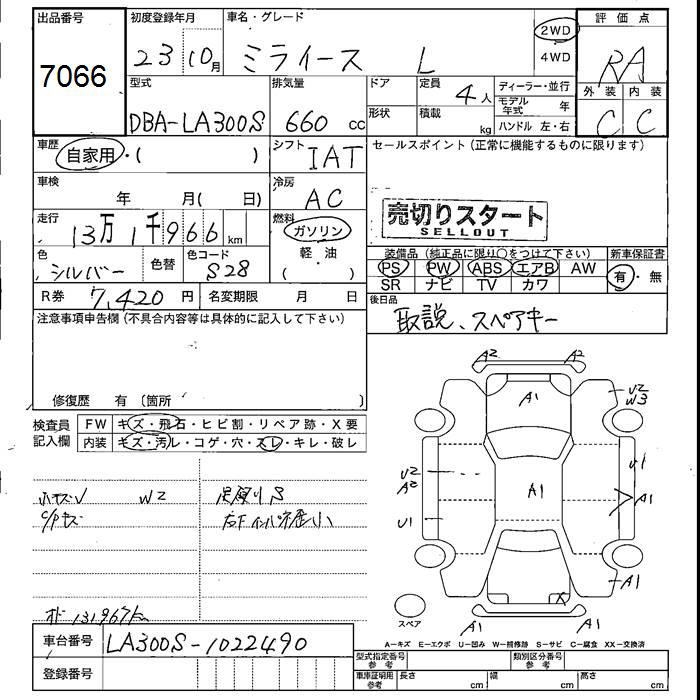 出品番号 初度登録年月 車名・グレード 2WD 評価点
7066 23 10月 ミライース L 4WD RA
型式 排気量 ドア 定員 ディーラー・並行 外装 内装
DBA-LA300S 660 cc 4人 モデル年式 年 C C
形状 積載 kg ハンドル 左・右
車歴 自家用・( ) シフト IAT セールスポイント(正常に機能するものに限ります)
車検 年 月( 日) 冷房 AC
売切りスタート
SELLOUT
走行 13万1千966 km 燃料 ガソリン
軽・油
( )
色 シルバー 色替 色コード S28
装備品(純正品に限り○をつけて下さい) 新車保証書
PS PW ABS エアB AW 有・無
SR ナビ TV カワ
R券 7,420円 名変期限 月 日
後日品
取説、スペアキー
注意事項申告欄(不具合内容等は具体的に記入して下さい)
修復歴 有(箇所 )
検査員記入欄 FW キズ・飛石・ヒビ割・リペア跡・X要
内装 キズ・汚レ・コゲ・穴・スレ・キレ・破レ
W2
A2 A2
A1
U2
W3
U2
A2
U1
A1
A1
U1
A1
X
スペア A1 A1
ｵﾄﾞ 131967km
A=キズ E=エクボ U=凹み W=補修跡 S=サビ C=腐食 XX=交換済
車台番号 LA300S-1022490
登録番号
型式指定番号 参考 類別区分番号 参考
車庫証明用 参考 長さ cm 幅 cm 高さ cm